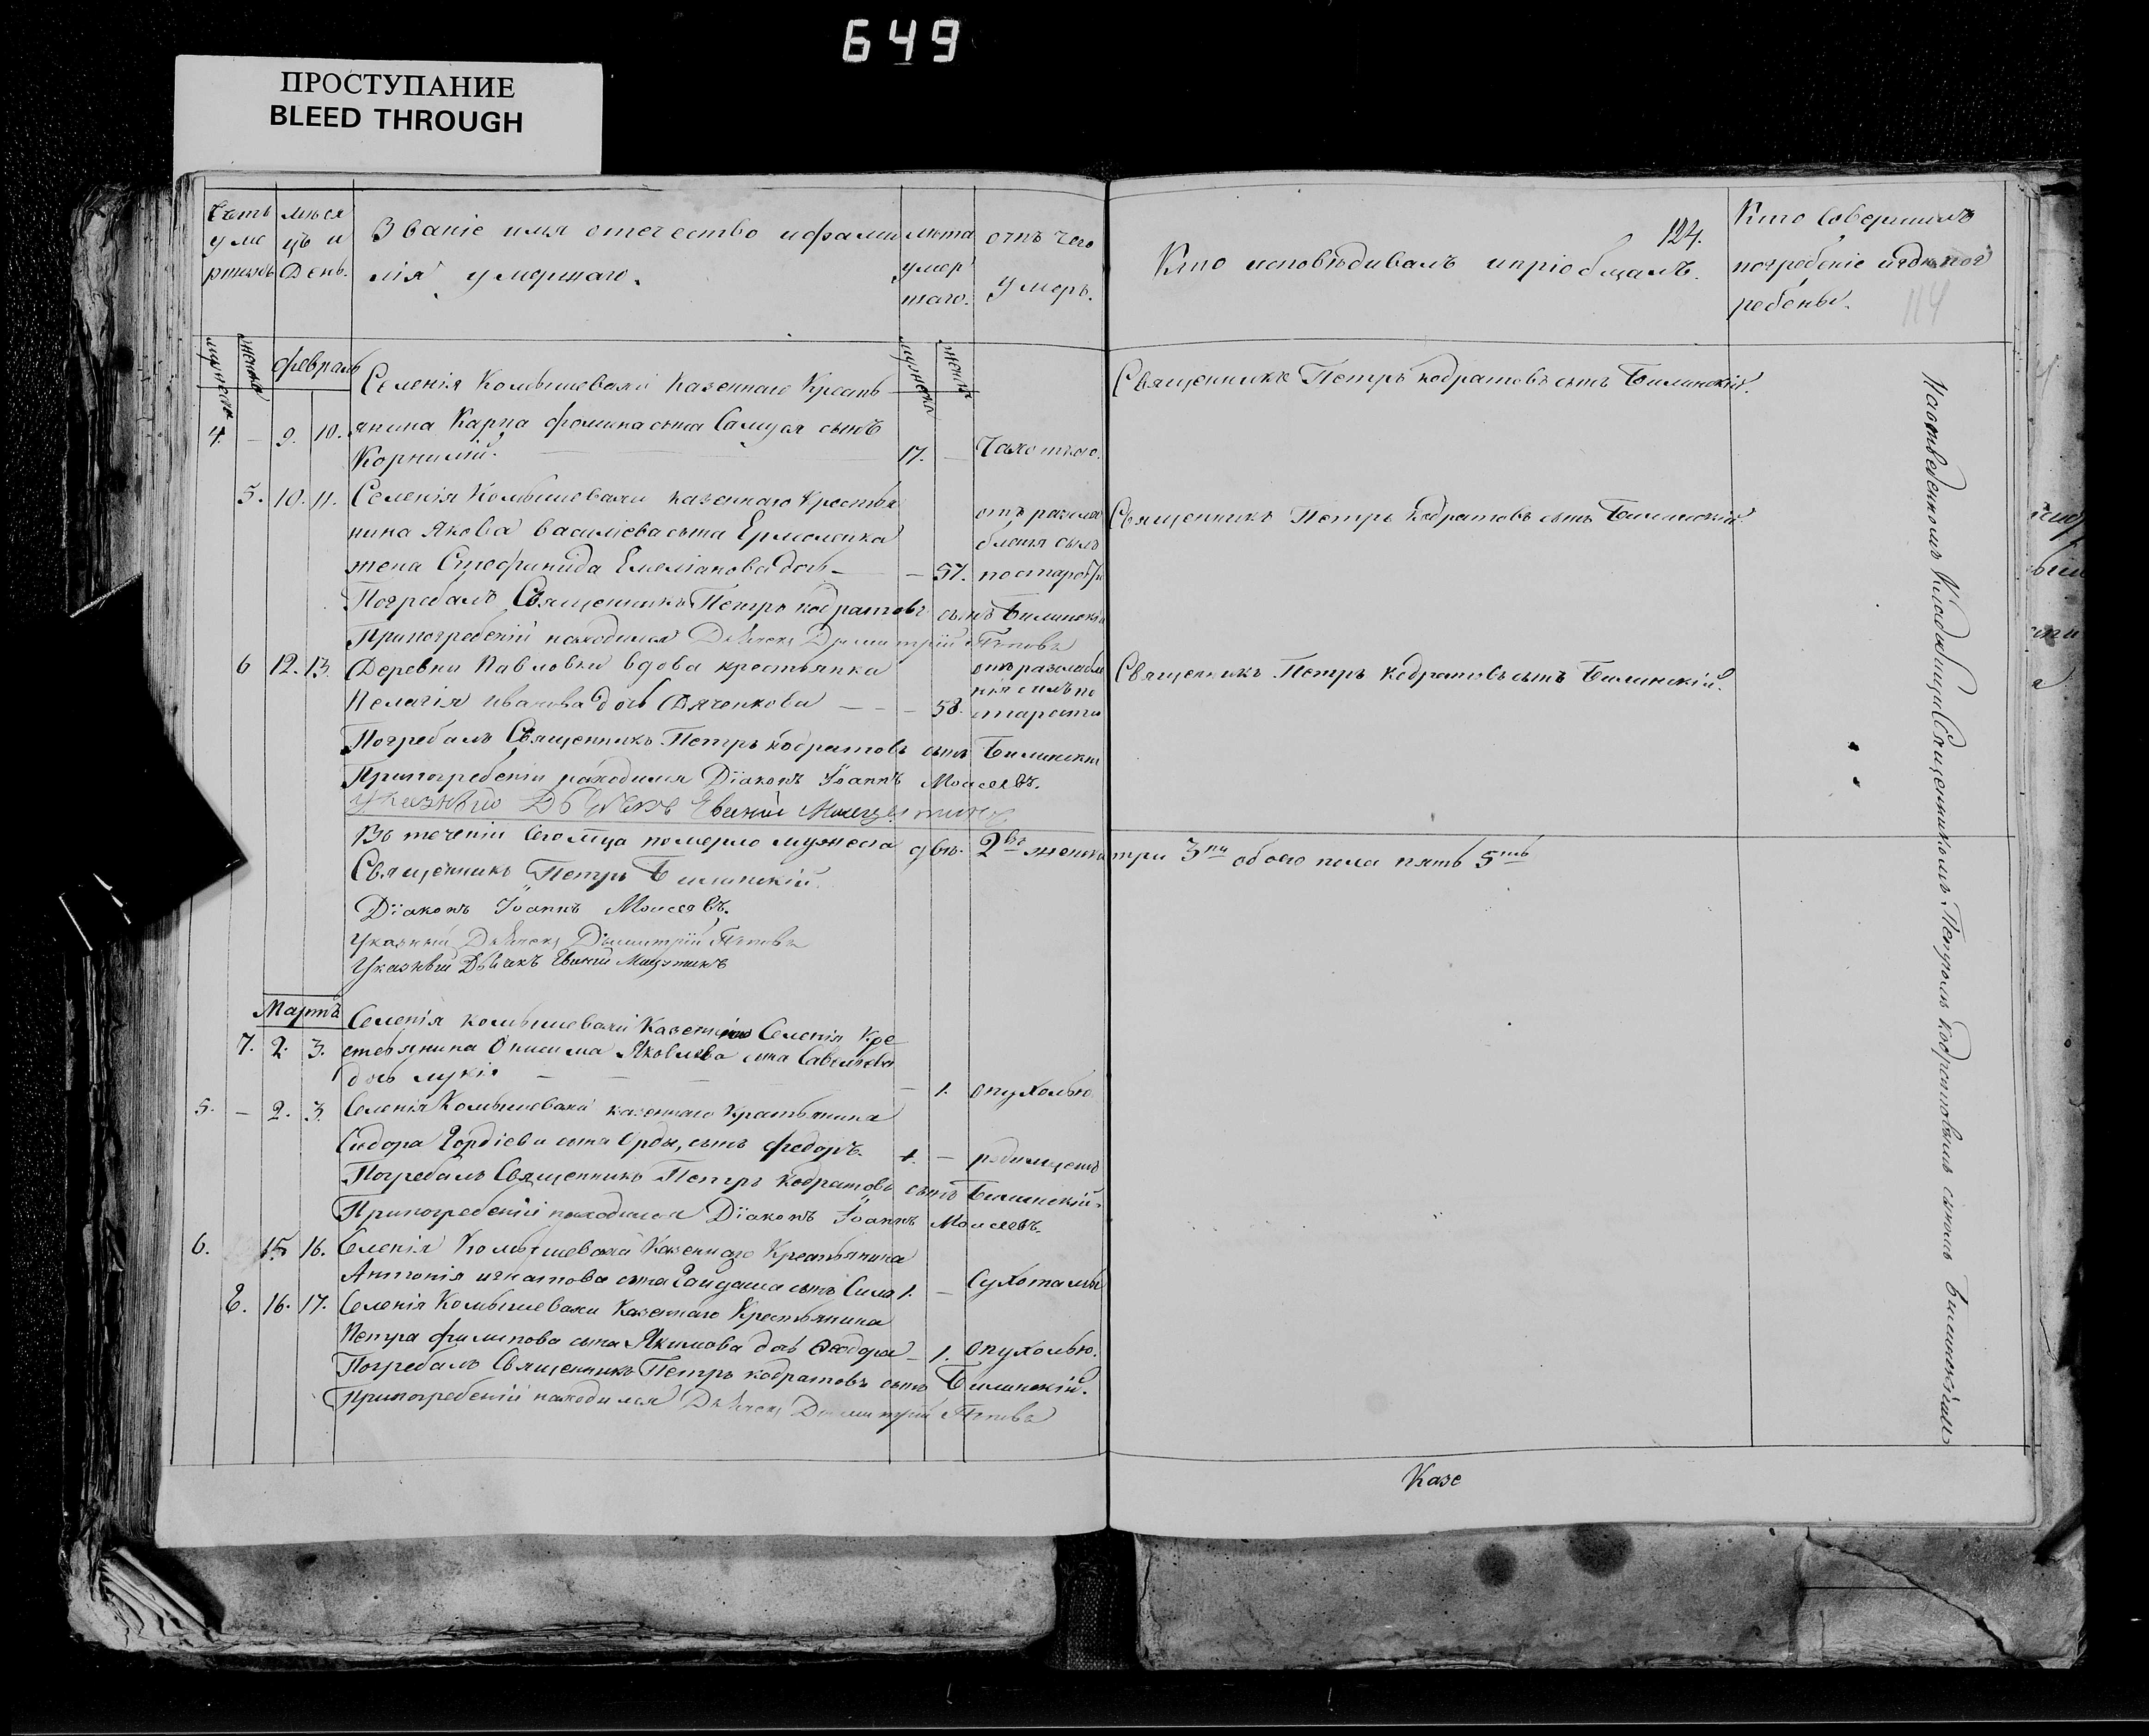 649
ПРОСТУПАНИЕ
BLEED THROUGH
Счетъ умершихъ
мѣсяцъ и День.
Званіе имя отечество и фамилія умершаго.
лѣта умершаго.
отъ чего умеръ.
124.
Кто исповѣдивалъ и пріобщалъ.
Кто Совершилъ погребеніе и гдѣ погребены.
114
мужеска
женска
февраль
мужеска
женска
Селенія Комышевахи Казеннаго Кресть
4. – 9. 10. янина Карпа фомина сына Самуся сынъ
Корнилій. 17. – Чахоткою.
Священникъ Петръ кодратовъ сынъ Билинскій.
5. 10. 11. Селенія Комышевахи казеннаго Крестья
нина Якова василіева сына Ермоленка
жена Стефанида Емеліанова дочь – 57.
отъ разсла
бленія силъ
по старости
Священникъ Петръ Кодратовъ сынъ Билинскій.
Погребалъ Священникъ Петръ кодратовъ сынъ Билинскій
При погребеніи находился Дьячекъ Димитрій
6 12. 13. Деревни Павловки вдова крестьянка
Пелагія иванова дочь Дяченкова – – – 58.
отъ разслабле
нія силъ по
старости
Священникъ Петръ кодратовъ сынъ Билинскій.
Погребалъ Священникъ Петръ кодратовъ сынъ Билинскій
При погребеніи находился Діаконъ Іоаннъ Моисеевъ.
Указный Дьячекъ Евсигій
Въ теченіи сего мца померло мужеска два. 2ва женска три 3ри обоего пола пять 5ть
Священникъ Петръ Билинскій.
Діаконъ Іоаннъ Моисеевъ.
Указный Дьячекъ Димитрій
Указный Дьячекъ
Мартъ
Селенія комышевахи Казеннаго Селенія Кре
7. 2. 3. стьянина Онисима Яковлева сына Савельева
дочь лукія – – – – 1. опухолью.
5. – 2. 3. Селенія Комышевахи казеннаго Крестьянина
Сидора Гордіева сына Орды, сынъ федоръ. 1. – родимцемъ
Погребалъ Священникъ Петръ Кодратовъ сынъ Билинскій.
При погребеніи находился Діаконъ Іоаннъ Моисеевъ.
6. 15 16. Селенія Комышевахи Казеннаго Крестьянина
Антонія игнатова сына Гайдаша сынъ Сила 1. – Сухотами
8. 16. 17. Селенія Комышевахи Казеннаго Крестьянина
Петра филипова сына Якимова дочь Феодора – 1. опухолью.
Погребалъ Священникъ Петръ кодратовъ сынъ Билинскій.
При погребеніи находился Дьячекъ Димитрій
На отведенномъ Кладбищѣ Священникомъ Петромъ кодратовымъ сыномъ Билинскимъ
Казе